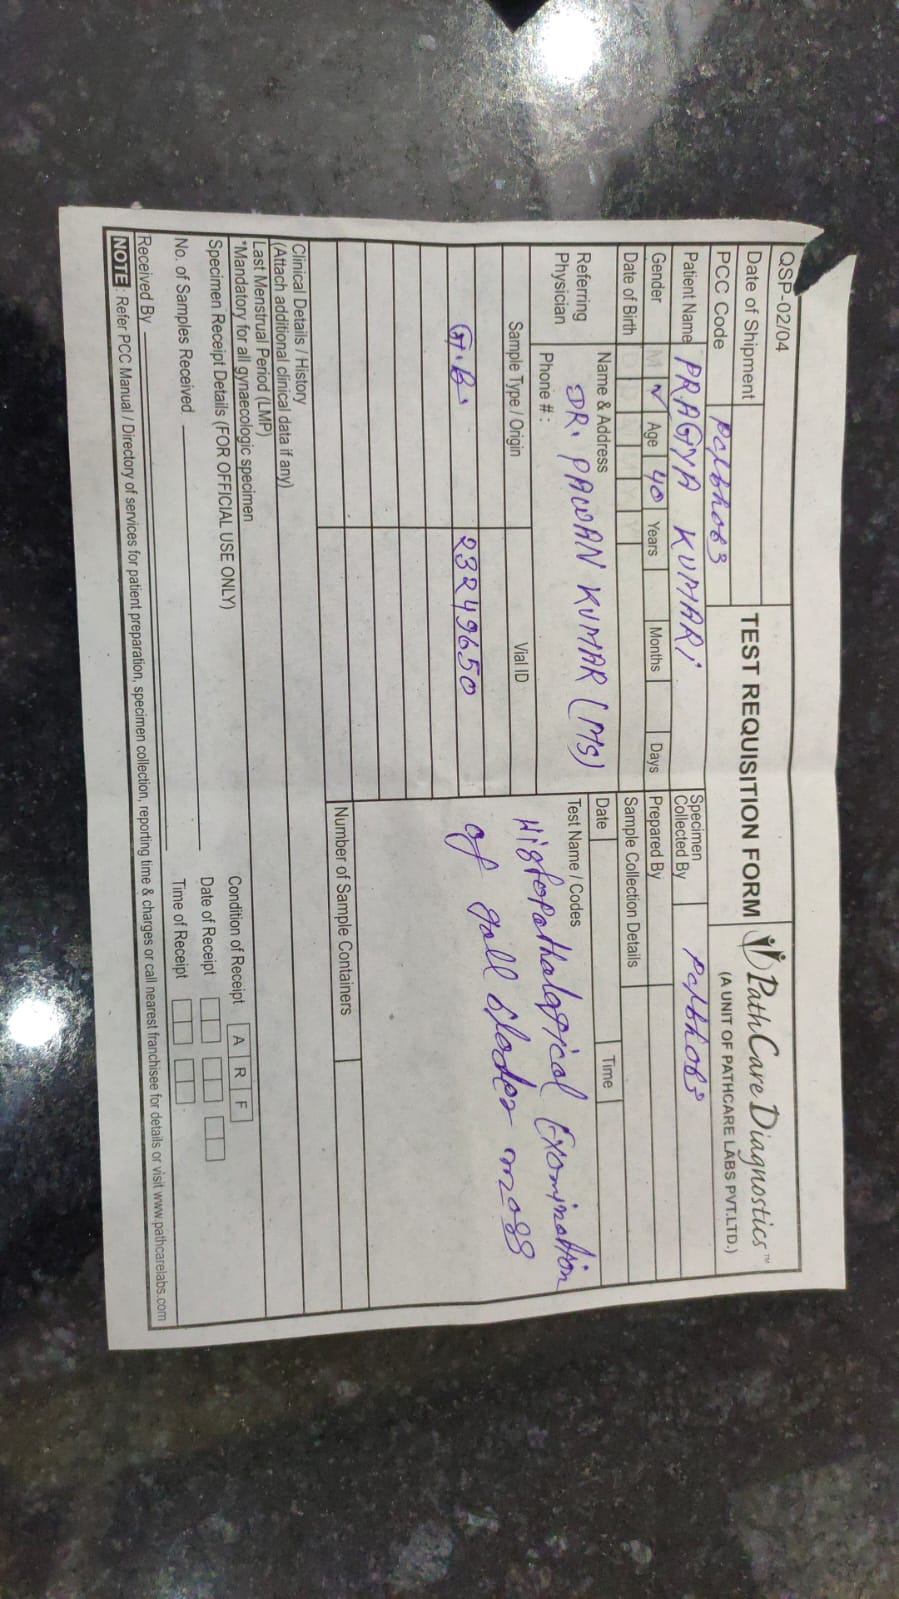 QSP-02/04
TEST REQUISITION FORM
PathCare Diagnostics™
(A UNIT OF PATHCARE LABS PVT.LTD.)
Date of Shipment
PCC Code
Patient Name PRAGYA KUMARI
Specimen Collected By
Gender M ✓ Age 40 Years Months Days
Prepared By
Date of Birth D D M M Y Y
Sample Collection Details
Referring Physician
Name & Address
DR. PAWAN KUMAR (MS)
Phone #:
Date Time
Test Name / Codes
Histopathalogical Examination
of gall blader mass
Sample Type / Origin Vial ID
G.B. 23249650
Number of Sample Containers
Clinical Details / History
(Attach additional clinical data if any)
Last Menstrual Period (LMP)
*Mandatory for all gynaecologic specimen
Specimen Receipt Details (FOR OFFICIAL USE ONLY)
No. of Samples Received
Condition of Receipt A R F
Date of Receipt
Time of Receipt
Received By
NOTE : Refer PCC Manual / Directory of services for patient preparation, specimen collection, reporting time & charges or call nearest franchisee for details or visit www.pathcarelabs.com